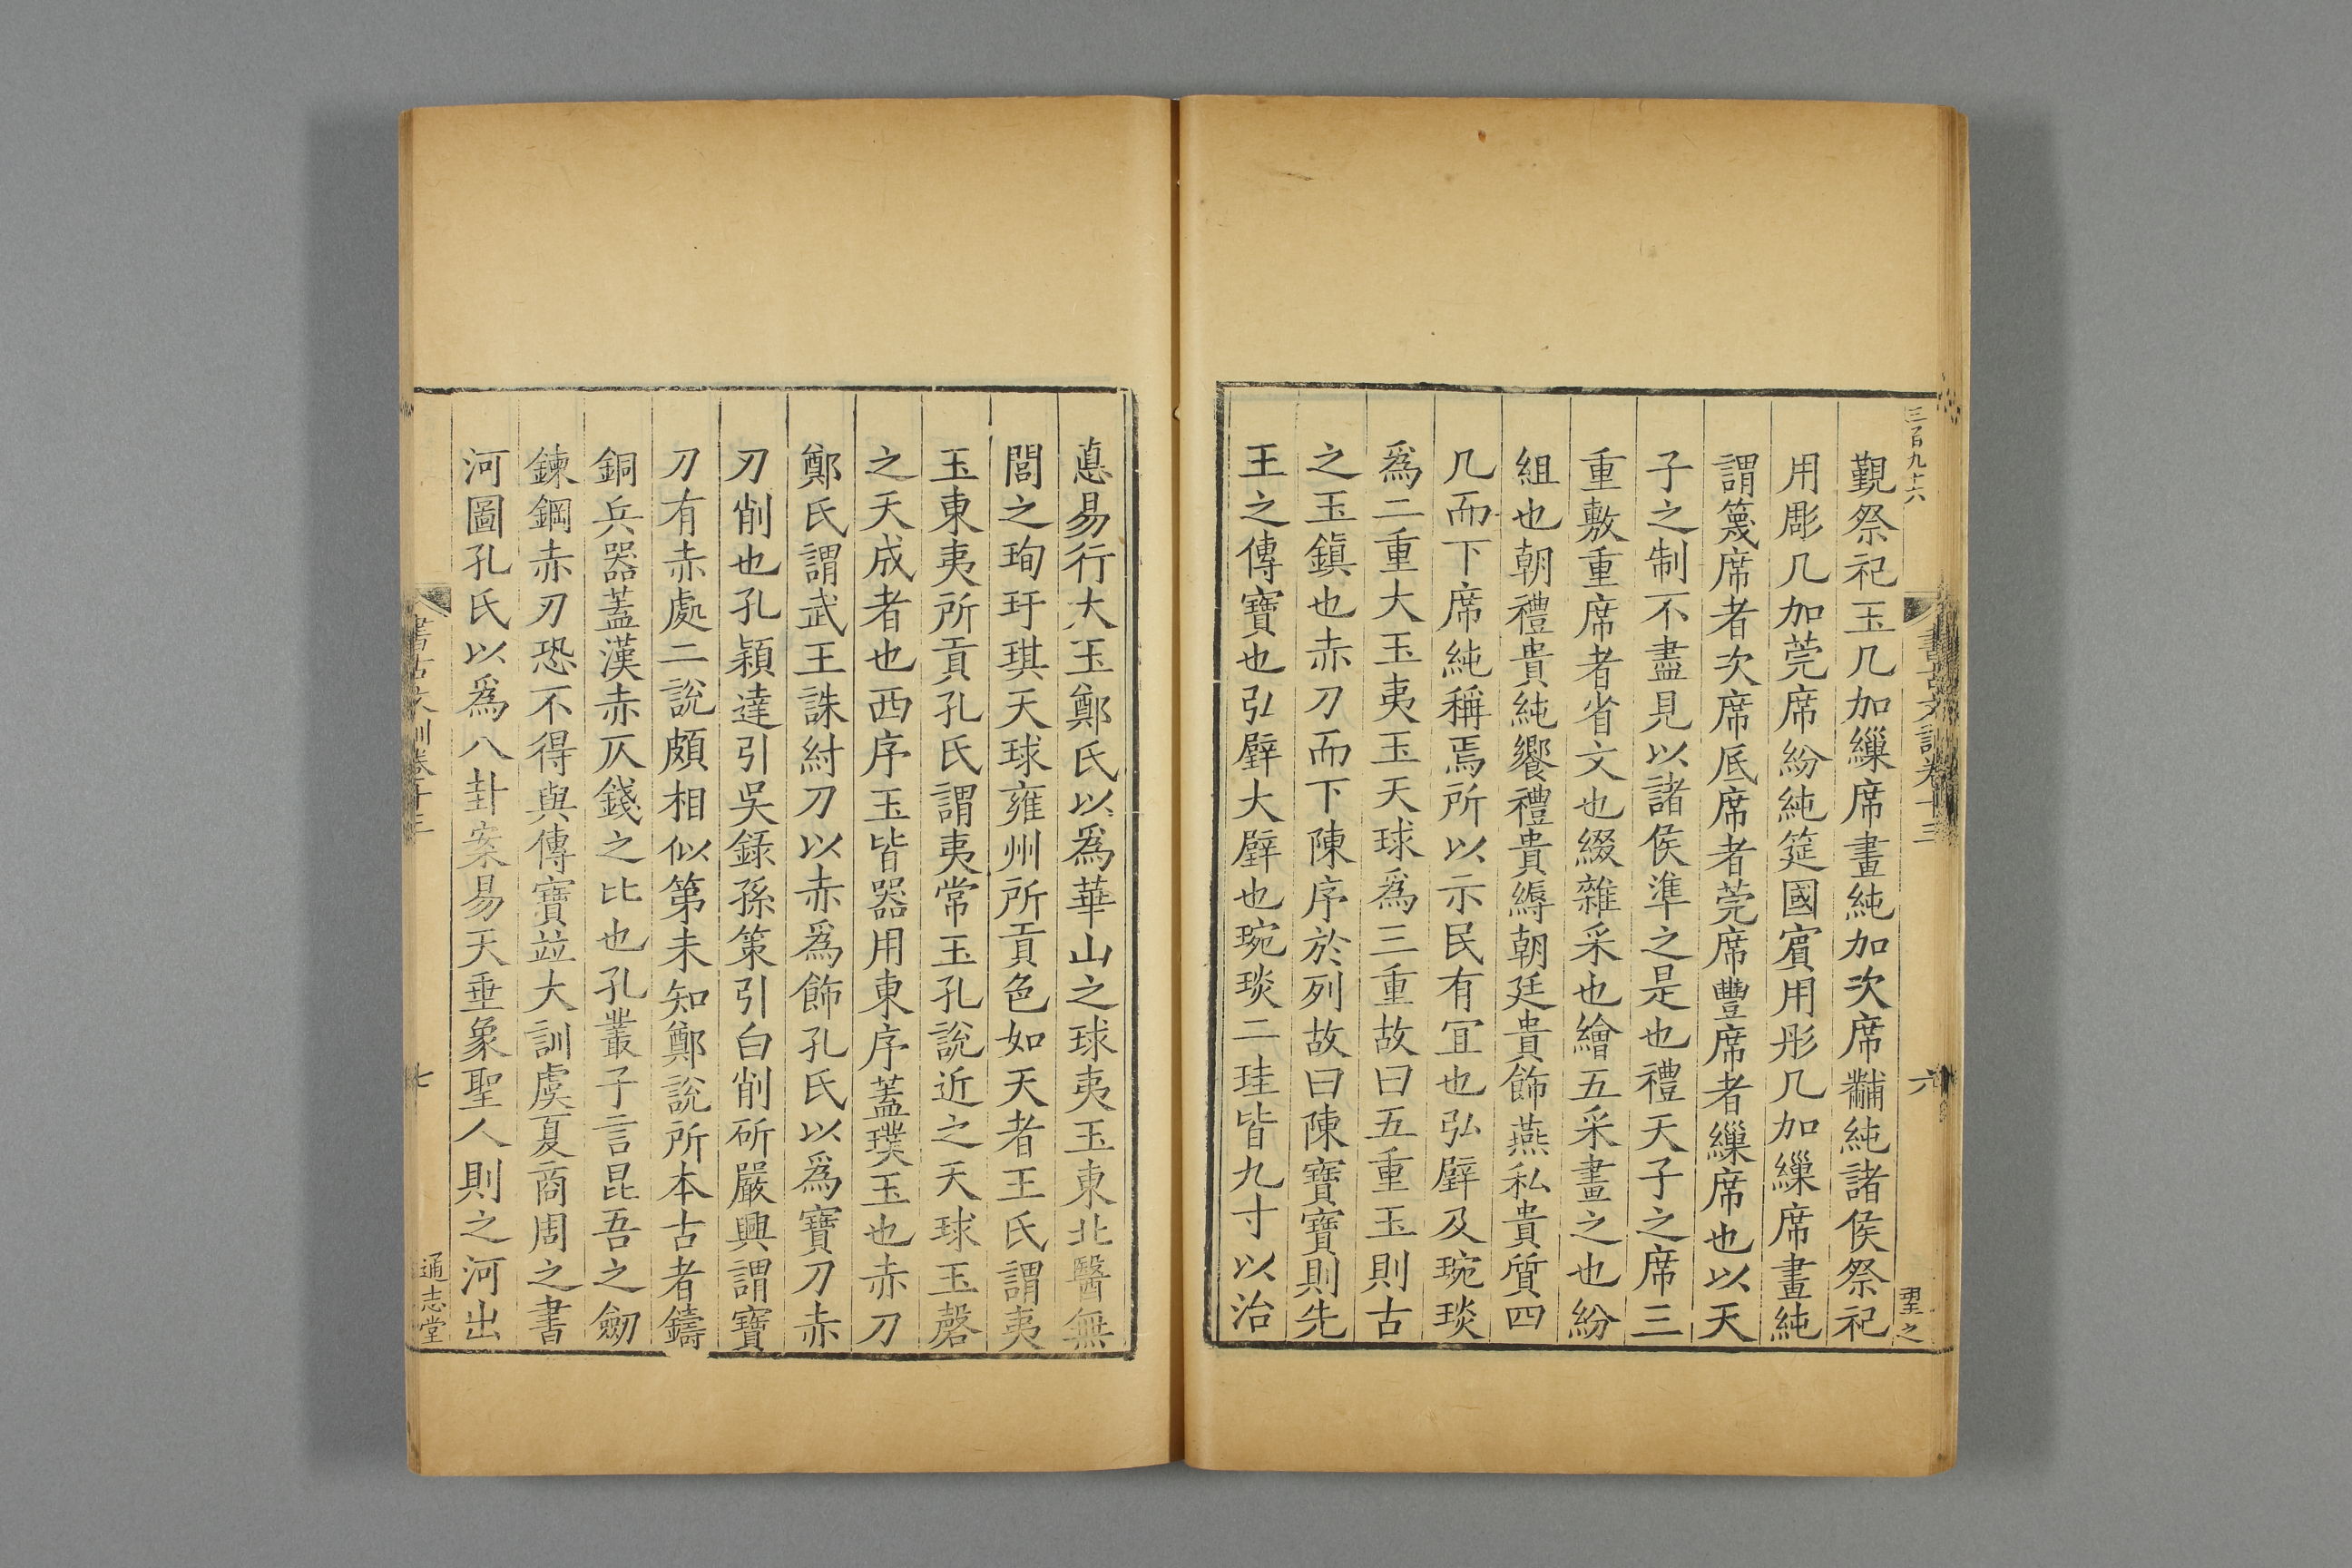 三百九十六
書古文訓卷十三
六
聖之
覲祭祀玉几加繅席畫純加次席黼純諸侯祭祀
用彫几加莞席紛純筵國賓用彤几加繅席畫純
謂篾席者次席底席者莞席豐席者繅席也以天
子之制不盡見以諸侯準之是也禮天子之席三
重敷重席者省文也綴雜采也繪五采畫之也紛
組也朝禮貴純饗禮貴縟朝廷貴飾燕私貴質四
几而下席純稱焉所以示民有宜也弘璧及琬琰
爲二重大玉夷玉天球爲三重故曰五重玉則古
之玉鎭也赤刀而下陳序於列故曰陳寶寶則先
王之傳寶也弘璧大璧也琬琰二珪皆九寸以治
悳易行大玉鄭氏以爲華山之球夷玉東北醫無
閭之珣玗琪天球雍州所貢色如天者王氏謂夷
玉東夷所貢孔氏謂夷常玉孔說近之天球玉磬
之天成者也西序玉皆器用東序蓋璞玉也赤刀
鄭氏謂武王誅紂刀以赤爲飾孔氏以爲寶刀赤
刃削也孔穎達引吳錄孫策引白削斫嚴輿謂寶
刀有赤處二說頗相似第未知鄭說所本古者鑄
銅兵器蓋漢赤仄錢之比也孔叢子言昆吾之劒
鍊鋼赤刃恐不得與傳寶竝大訓虞夏商周之書
河圖孔氏以爲八卦案易天垂象聖人則之河出
書古文訓卷十三
七
通志堂